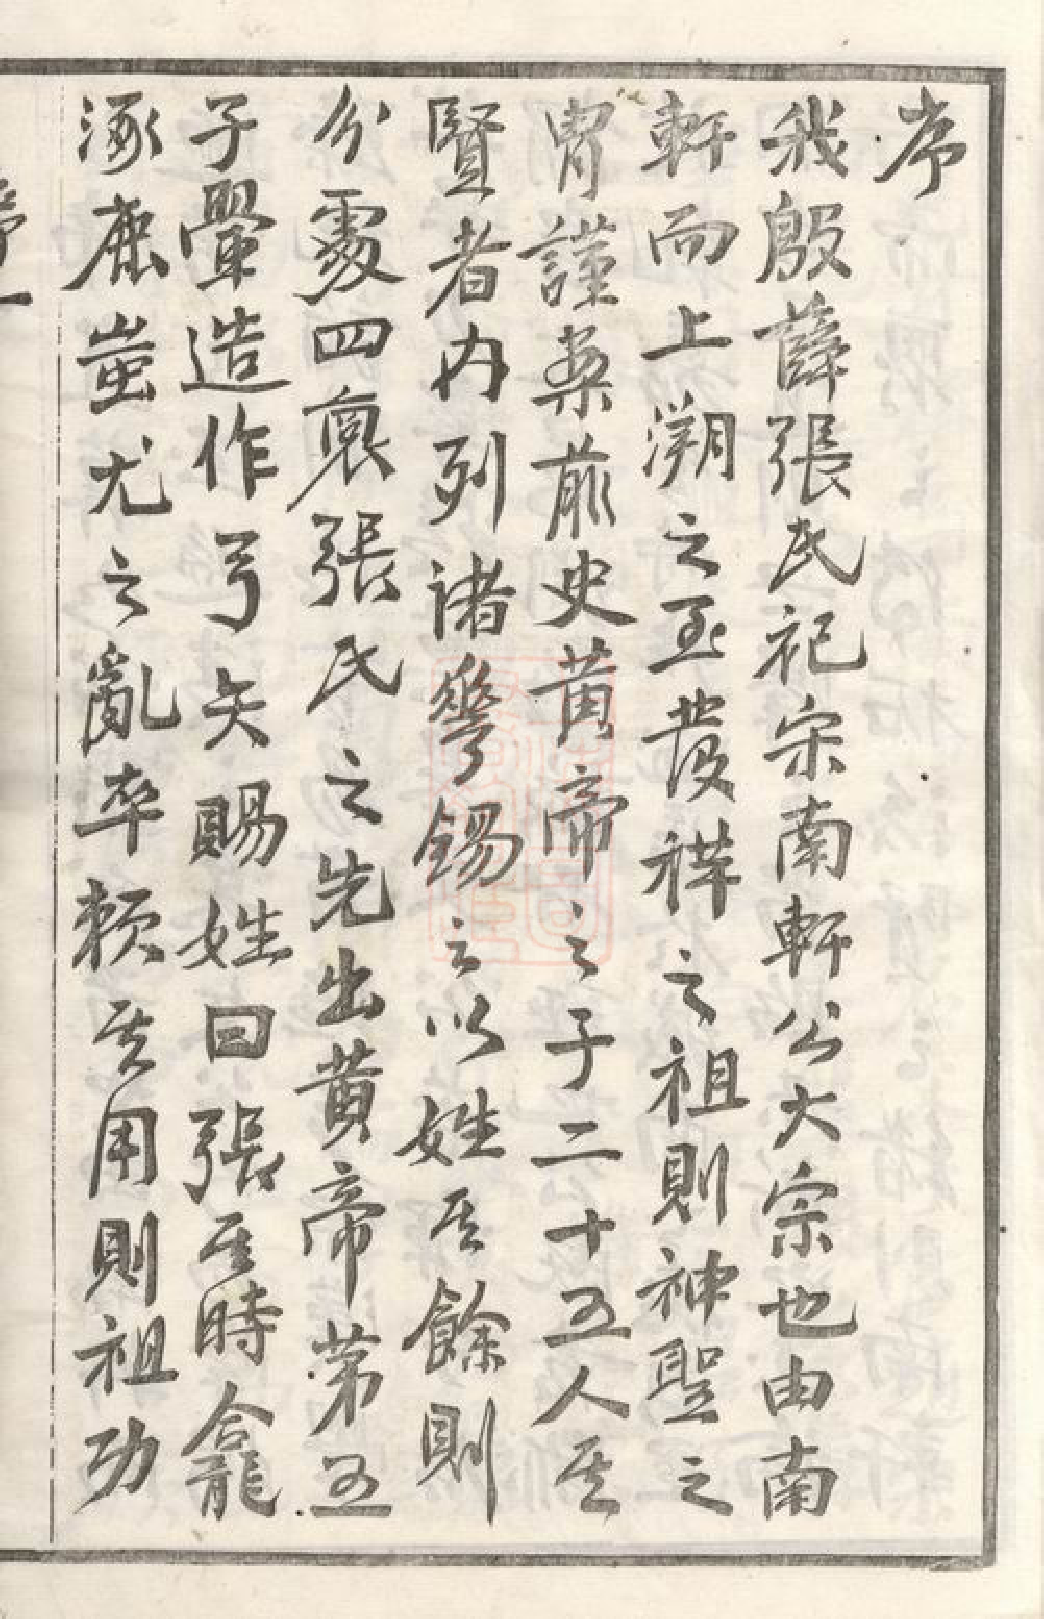 序
我殷薛張氏祀宋南軒公大宗也由南
軒而上溯之至發祥之祖則神聖之
胄謹案前史黄帝之子二十五人其
賢者內列諸侯錫之以姓其餘則
分處四裔張氏之先出黄帝第五
子暈造作弓矢賜姓曰張其時龕
涿鹿蚩尤之亂率賴其用則祖功
序一